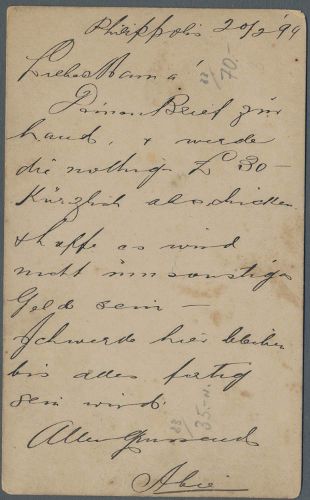 Philippolis 20/2 '99
Liebe Mama!
70.-
Deinen Brief zur
hand, & werde
die nöthige £ 30-
Kürzlich abschicken
& hoffe es wird
nicht umsonstiges
Geld sein —
Ich werde hier bleiben
bis alles fertig
sein wird.
35.-
Allen Gruss
Abie